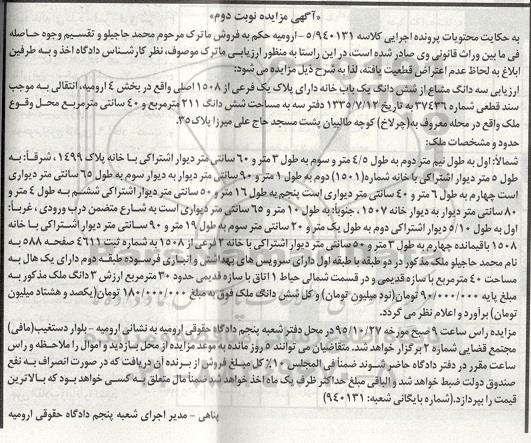 «آگهی مزایده نوبت دوم»
به حکایت محتویات پرونده اجرایی کلاسه ۵/۹۴۰۱۳۱- ارومیه حکم به فروش ماترک مرحوم محمد حاجیلو و تقسیم وجوه حاصله
فی ما بین وراث قانونی وی صادر شده است، در این راستا به منظور ارزیابی ماترک موصوف، نظر کارشناس دادگاه اخذ و به طرفین
ابلاغ به لحاظ عدم اعتراض قطعیت یافته، لذا به شرح ذیل مزایده می شود:
ارزیابی سه دانگ مشاع از شش دانگ یک باب خانه دارای پلاک یک فرعی از ۱۵۰۸ اصلی واقع در بخش ۴ ارومیه، انتقالی به موجب
سند قطعی شماره ۳۷۴۳۶ به تاریخ ۱۳۳۵/۷/۱۲ دفتر سه به مساحت شش دانگ ۲۱۱ مترمربع و ۴۰ سانتی مترمربع محل وقوع
ملک واقع در محله معروف به (چرلاخ) کوچه طالبیان پشت مسجد حاج علی میرزا پلاک ۳۵.
حدود و مشخصات ملک:
شمالاً: اول به طول نیم متر دوم به طول ۴/۵ متر و سوم به طول ۳ متر و ۶۰ سانتی متر دیوار اشتراکی با خانه پلاک ۱۴۹۹، شرقاً: به
طول ۵ متر دیوار اشتراکی با خانه شماره (۱۵۰۱) دوم به طول ۱ متر و ۹۰ سانتی متر دیوار به دیوار سوم به طول ۶۵ سانتی متر دیواری
است چهارم به طول ۶ متر و ۴۰ سانتی متر دیواری است پنجم به طول ۱۶ متر و ۵۰ سانتی متر دیوار اشتراکی ششم به طول ۴ متر و
۸۰ سانتی متر دیوار به دیوار خانه ۱۵۰۷ ، جنوباً: به طول ۱۰ متر و ۶۵ سانتی متر دیواری است به شارع متضمن درب ورودی ، غرباً:
اول به طول ۵/۱۰ متر دیوار اشتراکی دوم به طول یک متر و ۲۰ سانتی متر سوم به طول ۱۹ متر و ۹۰ سانتی متر اشتراکی با خانه
۱۵۰۸ باقیمانده چهارم به طول ۳ متر و ۵۰ سانتی متر دیوار اشتراکی با خانه ۲ فرعی از ۱۵۰۸ به شماره ثبت ۴۶۱۱ صفحه ۵۸۸ به
نام محمد حاجیلو ملک مذکور در دو طبقه با طبقه اول دارای سرویس های بهداشتی و انباری فرسوده طبقه دوم دارای یک هال به
مساحت ۴۰ مترمربع با سازه قدیمی و در قسمت شمالی حیاط ۱ اتاق با سازه قدیمی حدود ۳۰ مترمربع ارزش ۳ دانگ ملک مذکور به
مبلغ پایه ۹۰/۰۰۰/۰۰۰ تومان (نود میلیون تومان) و کل شش دانگ ملک فوق به مبلغ ۱۸۰/۰۰۰/۰۰۰ تومان (یکصد و هشتاد میلیون
تومان) برآورد و اعلام نظر می گردد.
مزایده راس ساعت ۹ صبح مورخه ۹۵/۱۰/۲۷ در محل دفتر شعبه پنجم دادگاه حقوقی ارومیه به نشانی ارومیه - بلوار دستغیب (مافی)
مجتمع قضایی شماره ۲ برگزار خواهد شد. متقاضیان می توانند ۵ روز مانده به موعد مزایده از محل بازدید و اموال را ملاحظه و راس
ساعت مقرر در دفتر دادگاه حاضر شوند ضمناً فی المجلس ۱۰٪ کل مبلغ فروش از برنده آن دریافت که در صورت انصراف به نفع
صندوق دولت ضبط خواهد شد و الباقی مبلغ حداکثر ظرف یک ماه اخذ خواهد شد ضمناً مال متعلق به کسی خواهد بود که بالاترین
قیمت را بپردازد. (شماره بایگانی شعبه: ۹۴۰۱۳۱)
پناهی - مدیر اجرای شعبه پنجم دادگاه حقوقی ارومیه